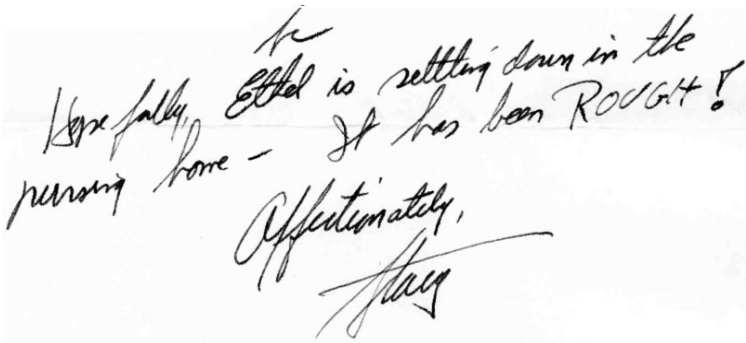 Hopefully, Ethel is settling down in the
nursing home – It has been ROUGH!
Affectionately,